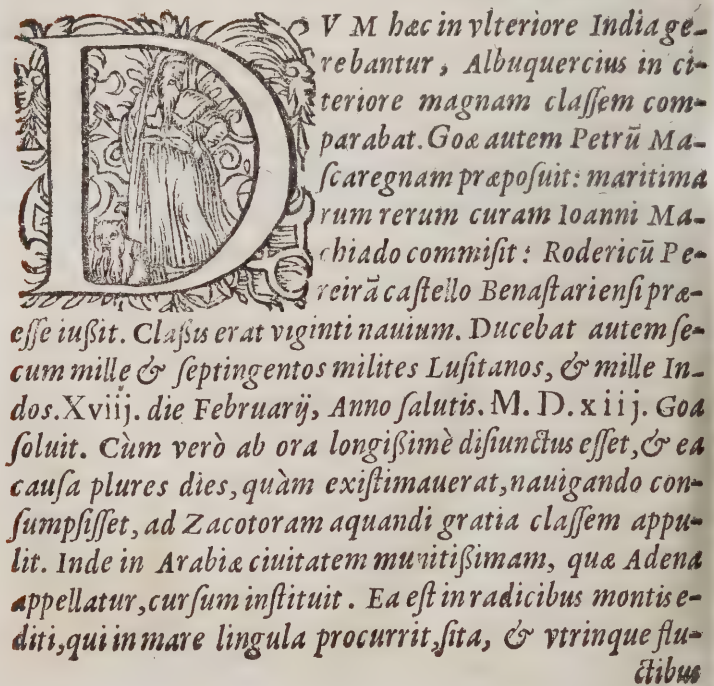 DVM hæc in vlteriore India ge-
rebantur, Albuquercius in ci-
teriore magnam claſſem com-
parabat. Goæ autem Petrū Ma-
ſcaregnam præpoſuit: maritima
rum rerum curam Ioanni Ma-
chiado commiſit: Rodericū Pe-
reirā caſtello Benaſtarienſi præ-
eſſe iußit. Claßis erat viginti nauium. Ducebat autem ſe-
cum mille & ſeptingentos milites Luſitanos, & mille In-
dos. Xviij. die Februarij, Anno ſalutis. M. D. xiij. Goa
ſoluit. Cùm verò ab ora longißimè diſiunctus eſſet, & ea
cauſa plures dies, quàm exiſtimauerat, nauigando con-
ſumpſiſſet, ad Zacotoram aquandi gratia claſſem appu-
lit. Inde in Arabiæ ciuitatem munitißimam, quæ Adena
appellatur, curſum inſtituit. Ea eſt in radicibus montis e-
diti, qui in mare lingula procurrit, ſita, & vtrinque flu-
ctibus